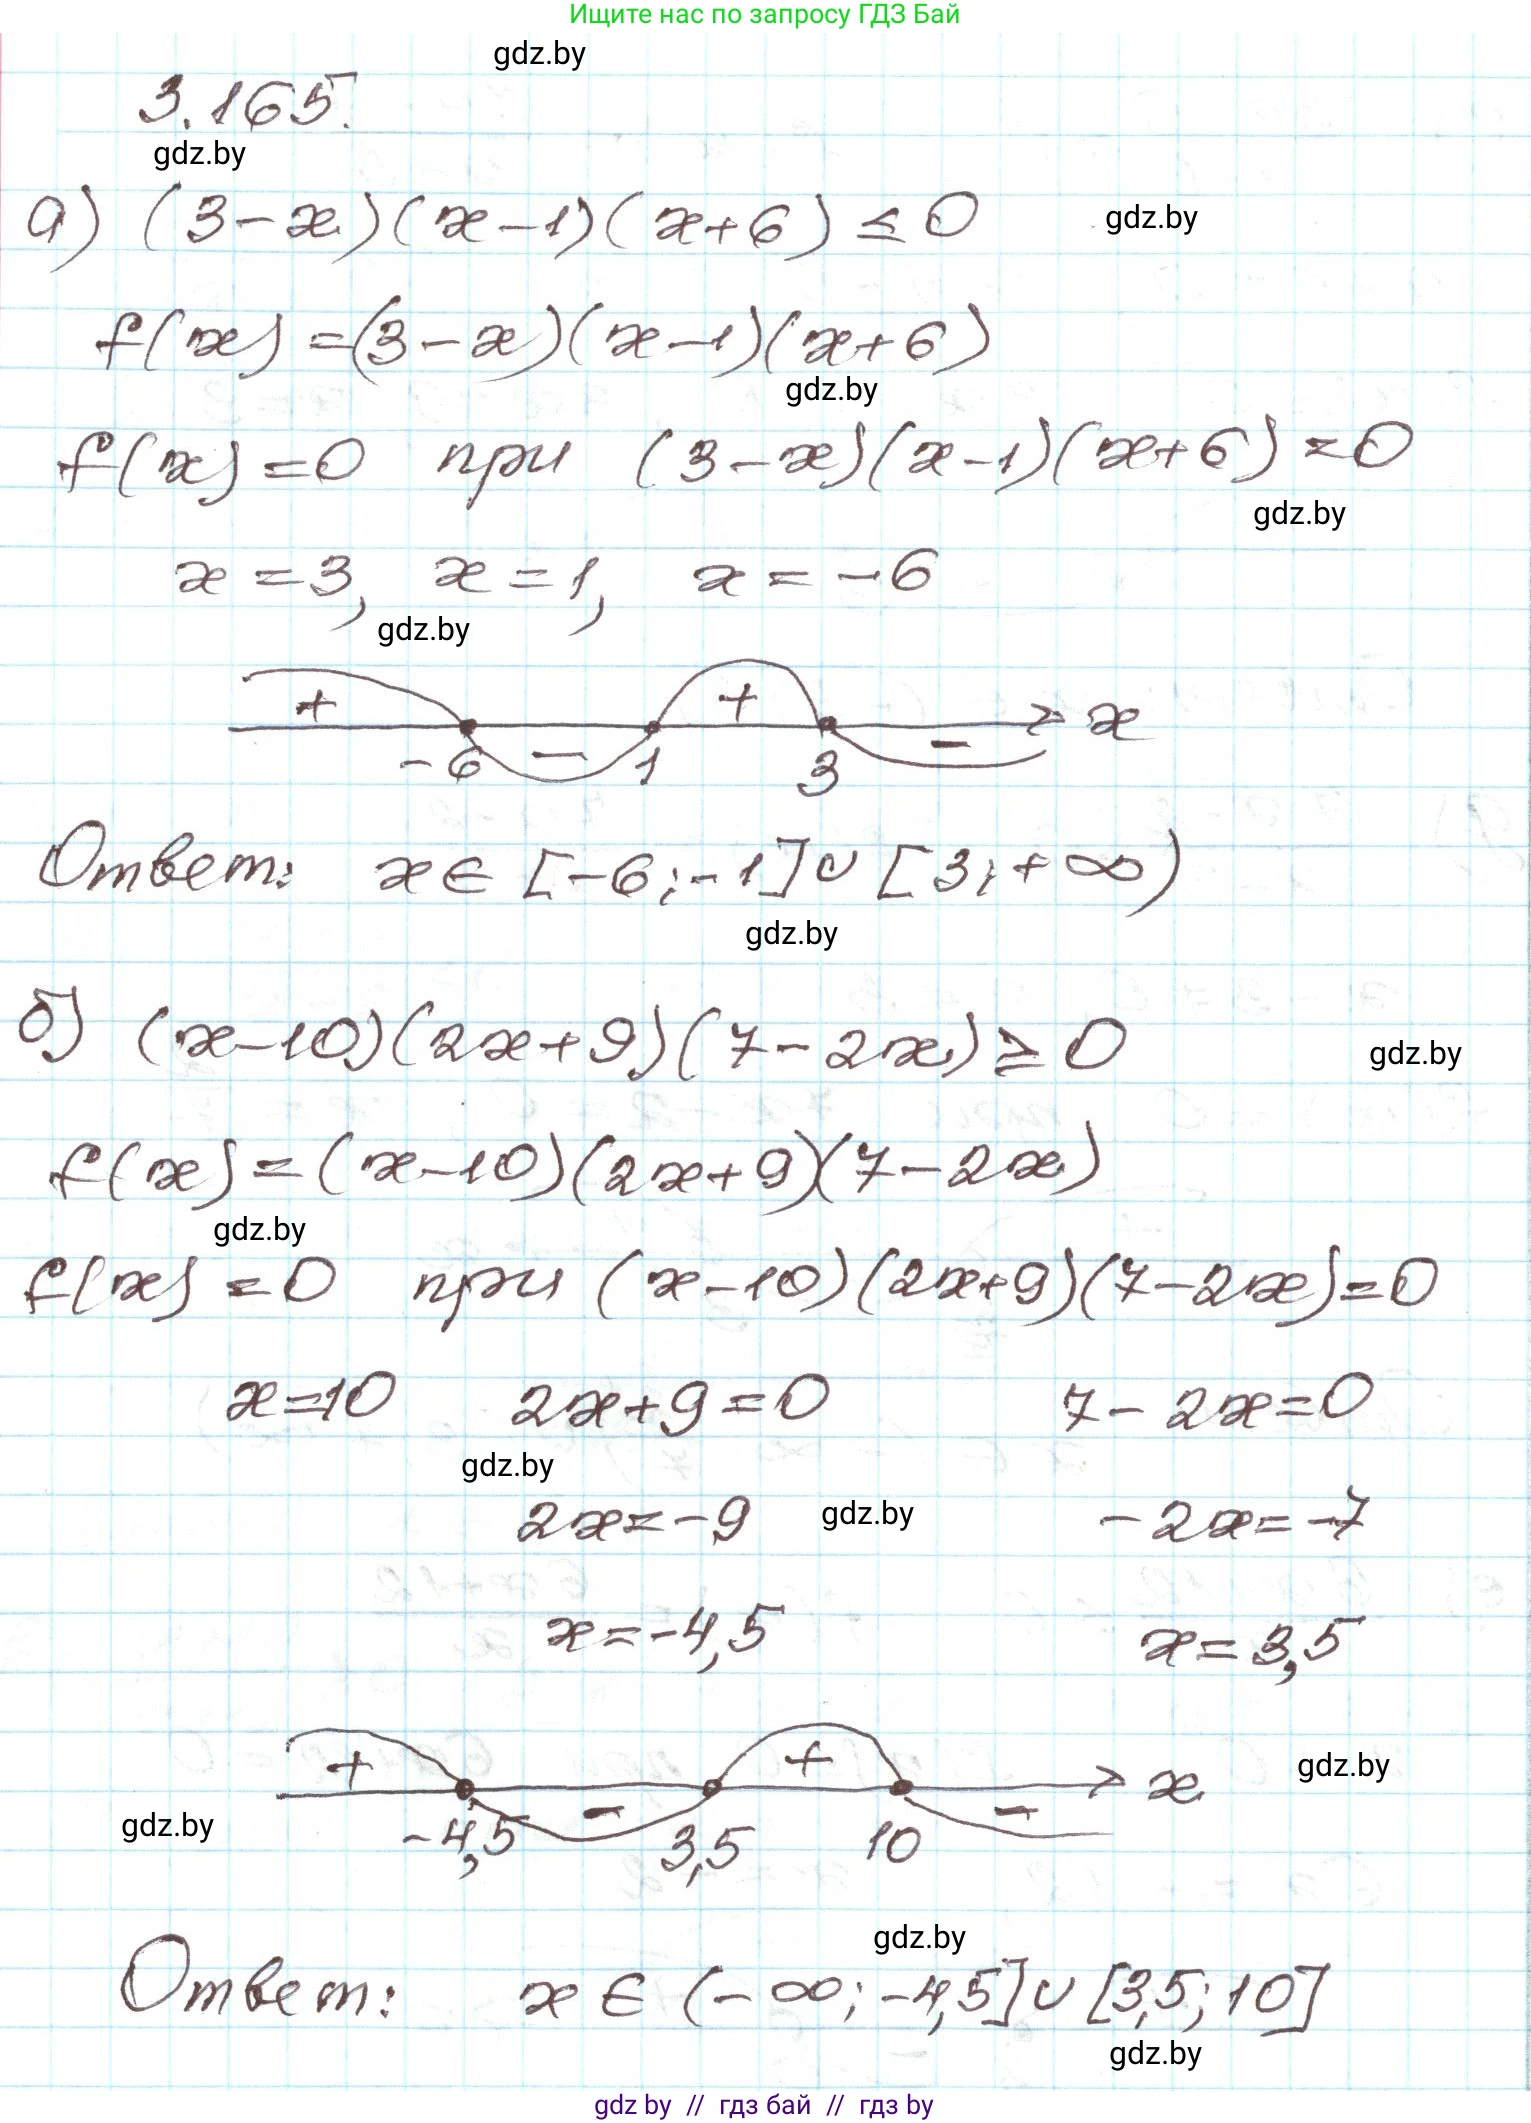 Ищите нас по запросу ГДЗ Бай
gdz.by
3.165.
gdz.by
а) (3-x)(x-1)(x+6) ≤ 0
gdz.by
f(x) = (3-x)(x-1)(x+6)
gdz.by
f(x) = 0 при (3-x)(x-1)(x+6) = 0
gdz.by
x = 3, x = 1, x = -6
gdz.by
+ - + - x
-6 1 3
Ответ: x ∈ [-6; -1] ∪ [3; +∞)
gdz.by
б) (x-10)(2x+9)(7-2x) ≥ 0
gdz.by
f(x) = (x-10)(2x+9)(7-2x)
gdz.by
f(x) = 0 при (x-10)(2x+9)(7-2x) = 0
x=10 2x+9=0 7-2x=0
gdz.by
2x=-9 gdz.by -2x=-7
x=-4,5 x=3,5
+ - + - x gdz.by
gdz.by -4,5 3,5 10
gdz.by
Ответ: x ∈ (-∞; -4,5] ∪ [3,5; 10]
gdz.by
gdz.by // гдз бай // гдз by